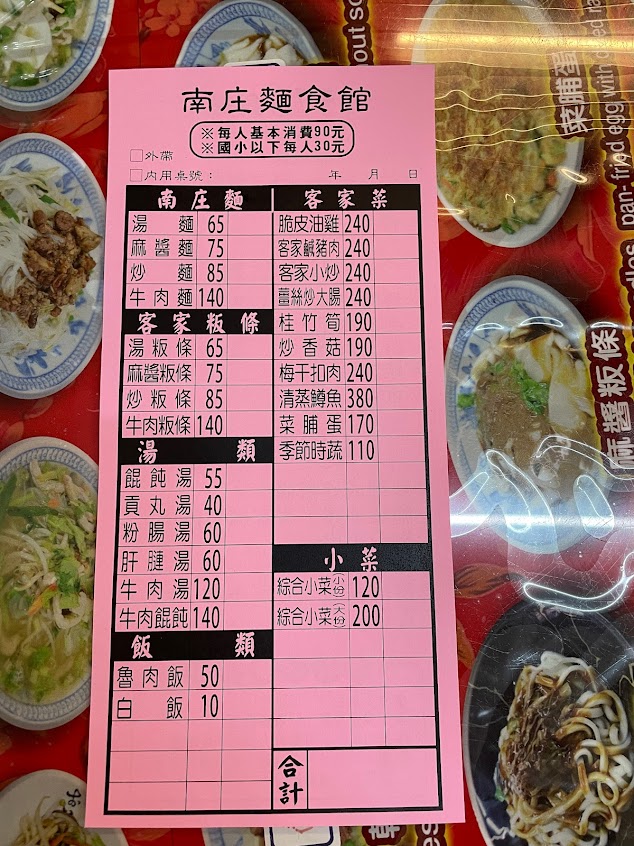 南庄麵食館
※每人基本消費90元
※國小以下每人30元
□外帶
□內用桌號： 年 月 日
南庄麵
湯麵 65
麻醬麵 75
炒麵 85
牛肉麵 140
客家粄條
湯粄條 65
麻醬粄條 75
炒粄條 85
牛肉粄條 140
湯類
餛飩湯 55
貢丸湯 40
粉腸湯 60
肝腱湯 60
牛肉湯 120
牛肉餛飩 140
飯類
魯肉飯 50
白飯 10
客家菜
脆皮油雞 240
客家鹹豬肉 240
客家小炒 240
薑絲炒大腸 240
桂竹筍 190
炒香菇 190
梅干扣肉 240
清蒸鱒魚 380
菜脯蛋 170
季節時蔬 110
小菜
綜合小菜(小份) 120
綜合小菜(大份) 200
合計
菜脯蛋
pan-fried egg with
麻醬粄條